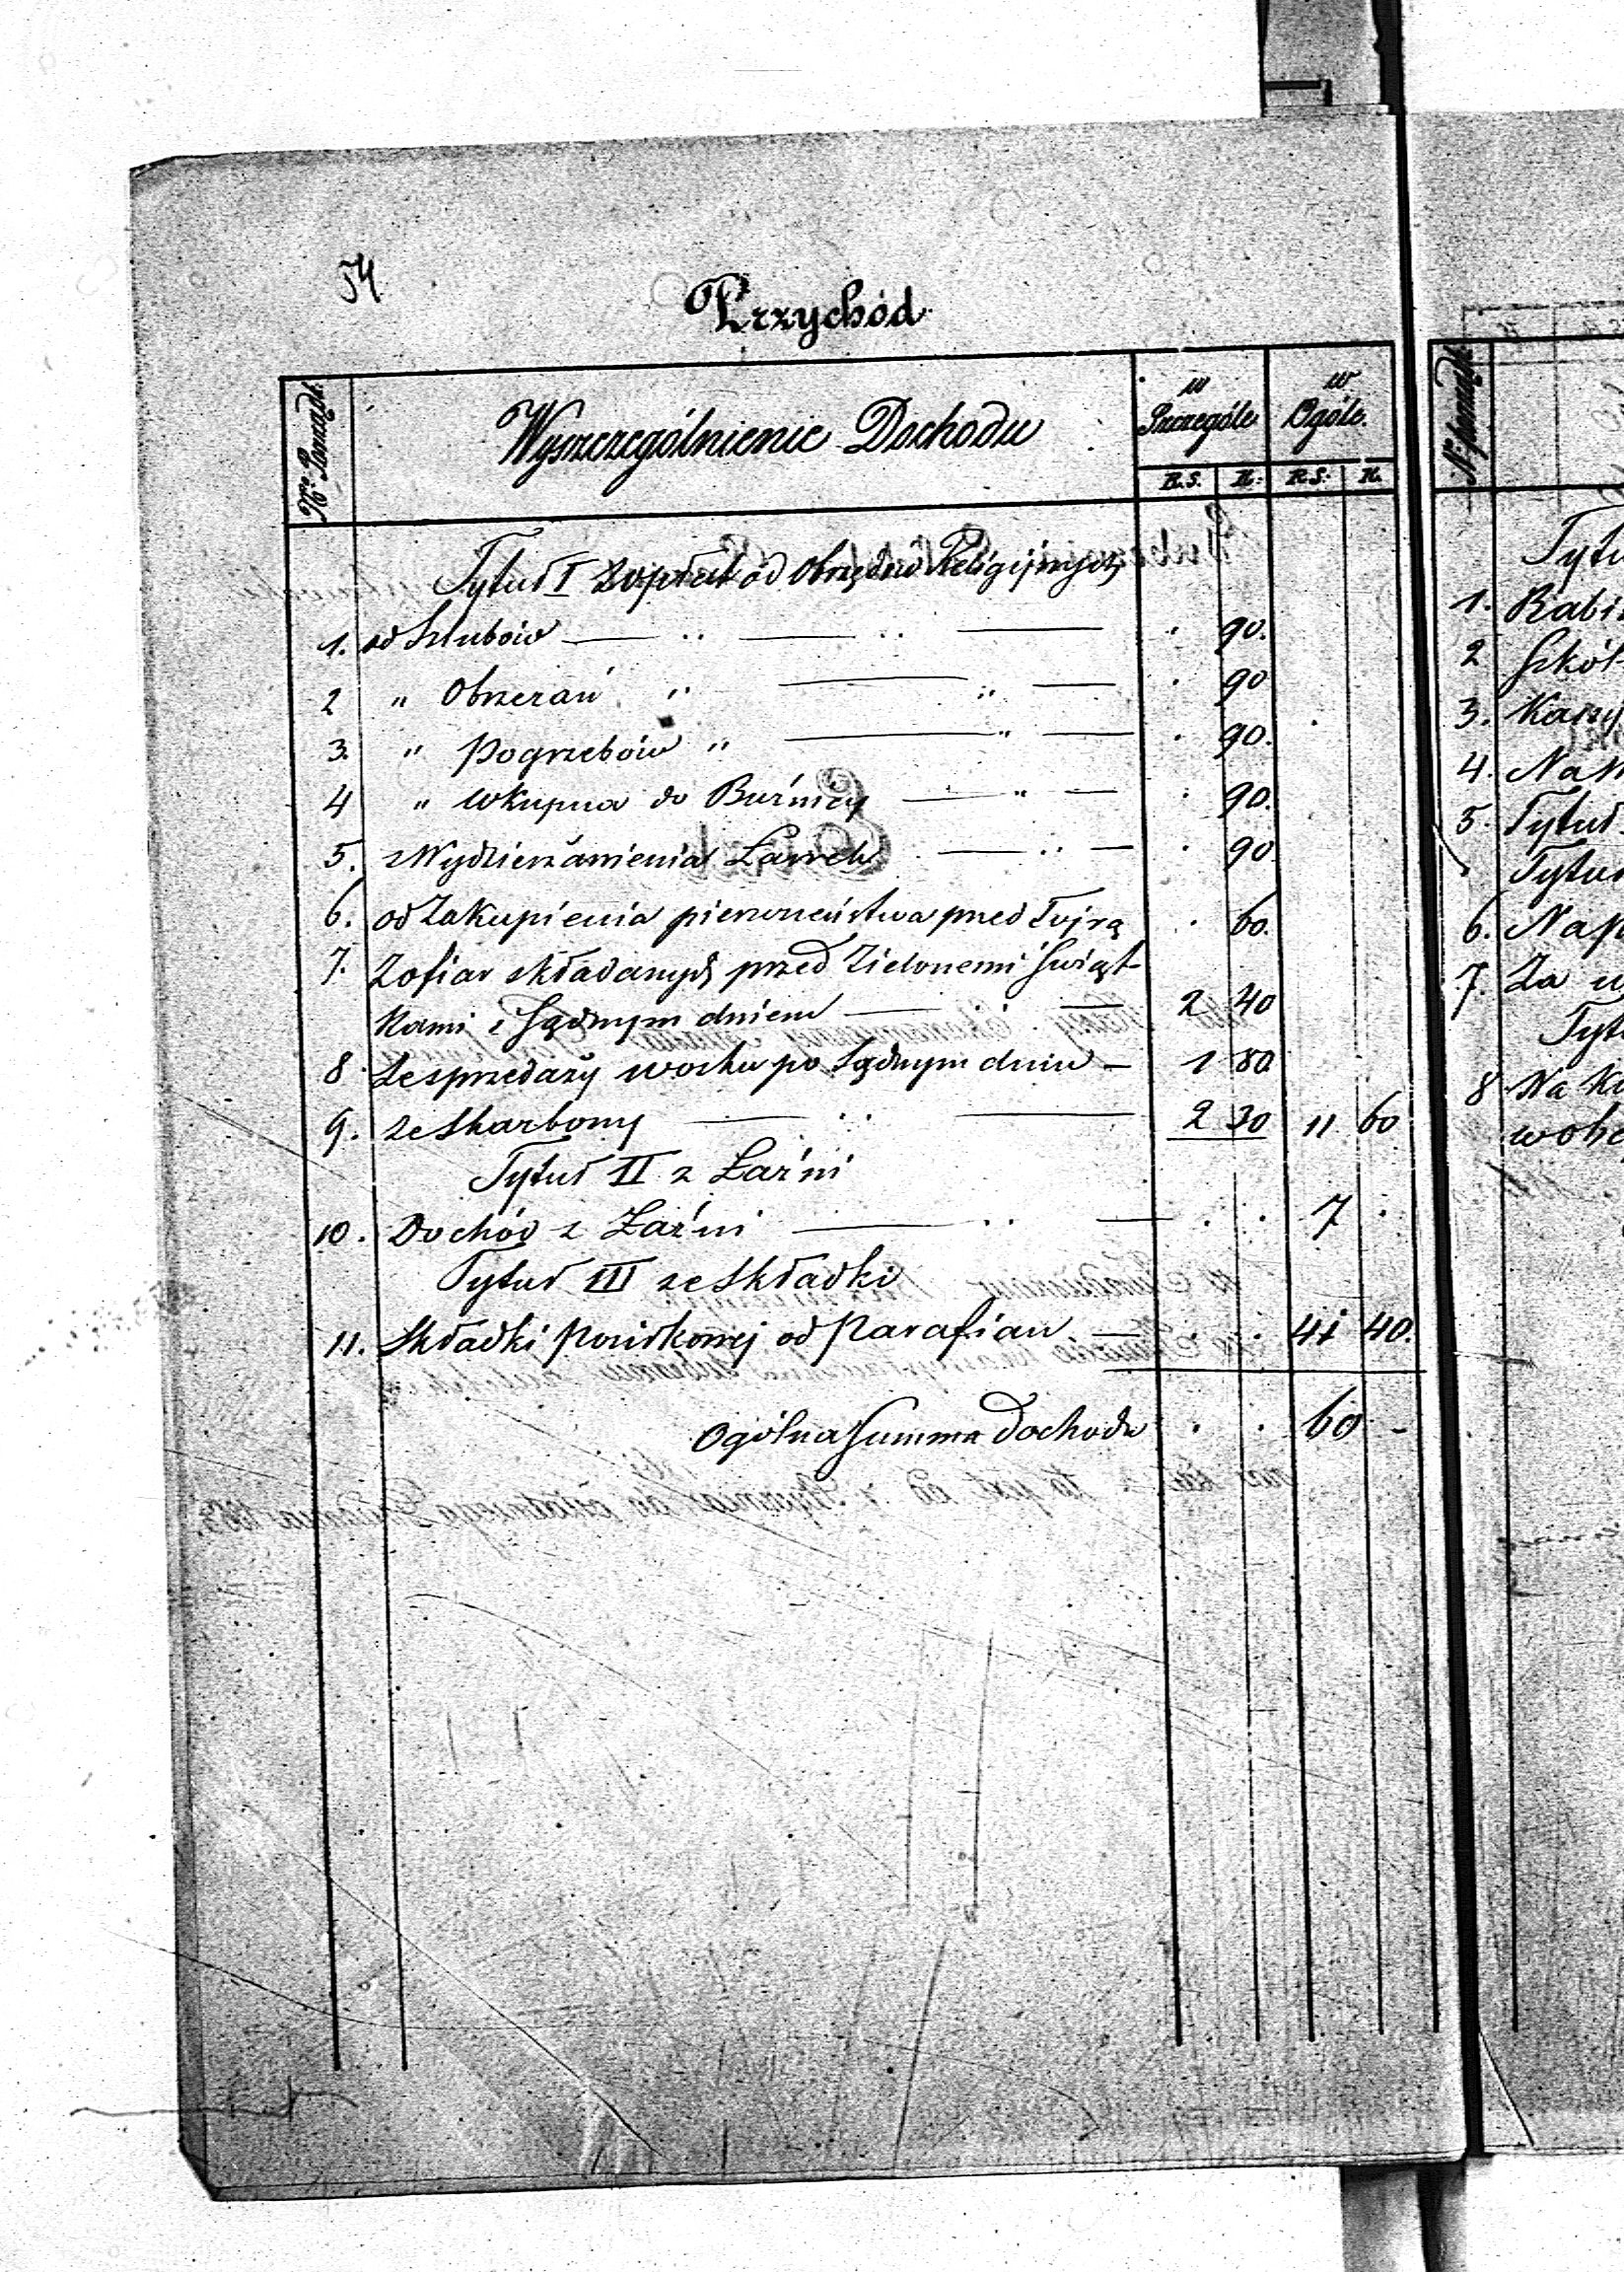 54
Przychód
No Porządk.
Wyszczególnienie Dochodu
w Szczególe
w Ogóle.
R.S. K. R.S. K.
Tytuł I z opłat od Obrzędów Religijnych
1. od Szlubów — " — " — . 90.
2 " Obrzezań " — " — . 90
3. " Pogrzebów " — " — . 90.
4 " Wkupna do Buźnicy — " — . 90.
5. z Wydzierżawienia Ławek — " — . 90
6. od Zakupienia pierwszeństwa przed Tojrą . 60.
7. Z ofiar składanych przed Zielonemi Świąt-
kami i Sądnym dniem — — 2 40
8 Ze sprzedaży wosku po Sądnym dniu — 1 80
9. ze Skarbony — " — 2 30 11 60
Tytuł II z Łaźni
10. Dochód z Łaźni — " — . . 7 .
Tytuł III ze Składki
11. Składki od Parafian — . . 41 40.
Ogólna Summa Dochodu . . 60 -
N. porządk.
Tytu
1. Rabi
2 Szkól
3. Kasy
4. Na
5. Tytuł
Tytuł
6. Na
7. Za
Tyt
8 Na